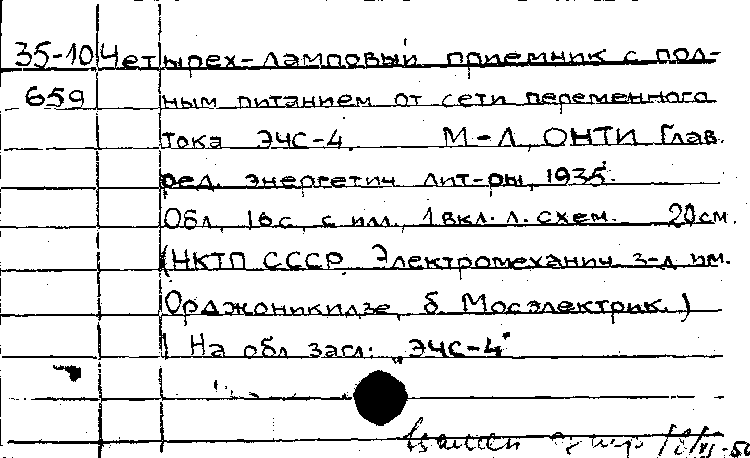 35-10 Четырех-ламповый приемник с пол-
659 ным питанием от сети переменного
тока ЭЧС-4. М-Л, ОНТИ Глав.
ред. энергетич лит-ры, 1935.
Обл, 16с, с илл., 1 вкл. л. схем. 20см.
(НКТП СССР. Электромеханич. з-д им.
Орджоникидзе, б. Мосэлектрик.)
! На обл загл: „ЭЧС-4"